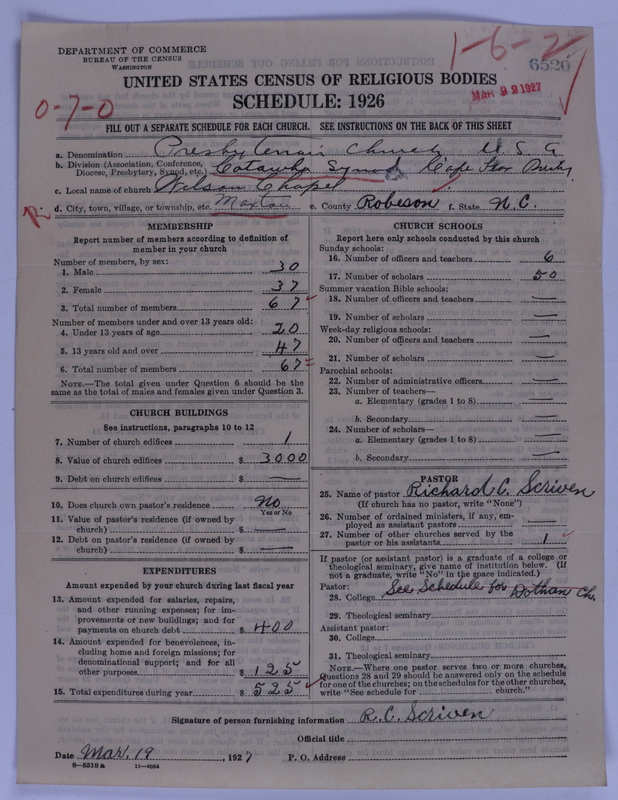 DEPARTMENT OF COMMERCE
BUREAU OF THE CENSUS
WASHINGTON
1-6-2
6520
UNITED STATES CENSUS OF RELIGIOUS BODIES
MAR 22 1927
SCHEDULE: 1926
0-7-0
FILL OUT A SEPARATE SCHEDULE FOR EACH CHURCH. SEE INSTRUCTIONS ON THE BACK OF THIS SHEET
a. Denomination Presbyterian Church U.S.A
b. Division (Association, Conference, Diocese, Presbytery, Synod, etc.) Catawba Synod Cape Fear
c. Local name of church Wilson Chapel
d. City, town, village, or township, etc. Maxton e. County Robeson f. State N.C.
MEMBERSHIP
Report number of members according to definition of
member in your church
Number of members, by sex:
1. Male 30
2. Female 37
3. Total number of members 67
Number of members under and over 13 years old:
4. Under 13 years of age 20
5. 13 years old and over 47
6. Total number of members 67
NOTE.—The total given under Question 6 should be the
same as the total of males and females given under Question 3.
CHURCH BUILDINGS
See instructions, paragraphs 10 to 12
7. Number of church edifices 1
8. Value of church edifices $ 3000
9. Debt on church edifices $ —
10. Does church own pastor's residence No
Yes or No
11. Value of pastor's residence (if owned by
church) $ —
12. Debt on pastor's residence (if owned by
church) $ —
EXPENDITURES
Amount expended by your church during last fiscal year
13. Amount expended for salaries, repairs,
and other running expenses; for im-
provements or new buildings; and for
payments on church debt $ 400
14. Amount expended for benevolences, in-
cluding home and foreign missions; for
denominational support; and for all
other purposes $ 125
15. Total expenditures during year $ 525
CHURCH SCHOOLS
Report here only schools conducted by this church
Sunday schools:
16. Number of officers and teachers 6
17. Number of scholars 50
Summer vacation Bible schools:
18. Number of officers and teachers —
19. Number of scholars —
Week-day religious schools:
20. Number of officers and teachers —
21. Number of scholars —
Parochial schools:
22. Number of administrative officers —
23. Number of teachers—
a. Elementary (grades 1 to 8) —
b. Secondary —
24. Number of scholars—
a. Elementary (grades 1 to 8) —
b. Secondary —
PASTOR
25. Name of pastor Richard C. Scriven
(If church has no pastor, write "None")
26. Number of ordained ministers, if any, em-
ployed as assistant pastors —
27. Number of other churches served by the
pastor or his assistants 1
If pastor (or assistant pastor) is a graduate of a college or
theological seminary, give name of institution below. (If
not a graduate, write "No" in the space indicated.)
Pastor:
28. College See Schedule for Dothan Ch.
29. Theological seminary
Assistant pastor:
30. College
31. Theological seminary
NOTE.—Where one pastor serves two or more churches,
Questions 28 and 29 should be answered only on the schedule
for one of the churches; on the schedules for the other churches,
write "See schedule for ........ church."
Signature of person furnishing information R. C. Scriven
Official title
Date Mar. 19 1927 P. O. Address
8-5518 a 11-9034